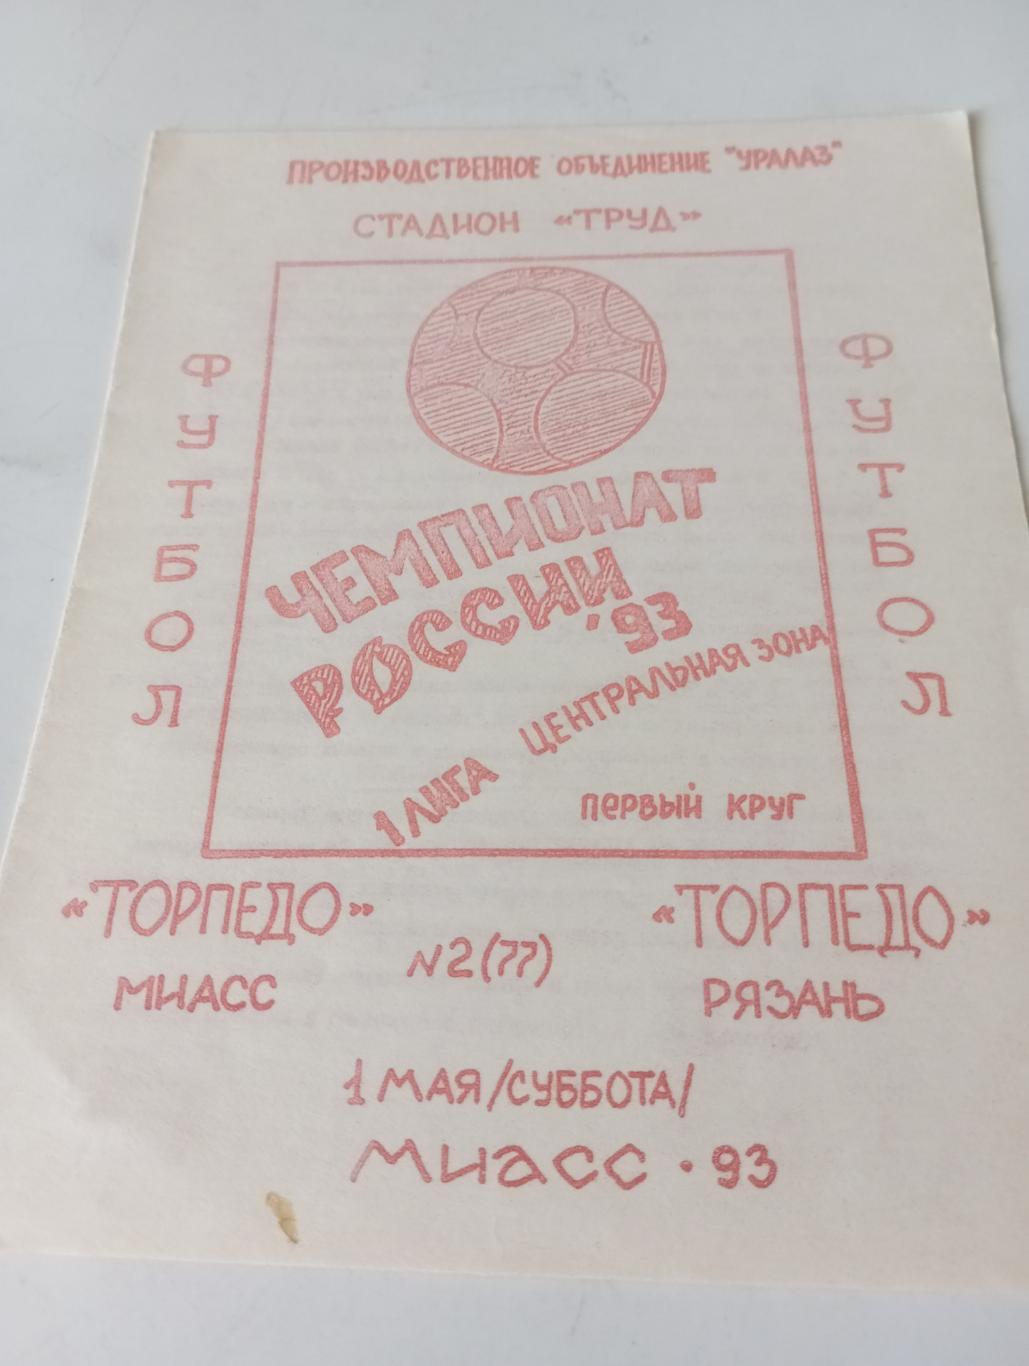 ПРОИЗВОДСТВЕННОЕ ОБЪЕДИНЕНИЕ "УРАЛАЗ"
СТАДИОН «ТРУД»
ФУТБОЛ
ЧЕМПИОНАТ
РОССИИ '93
1 ЛИГА ЦЕНТРАЛЬНАЯ ЗОНА
ПЕРВЫЙ КРУГ
ФУТБОЛ
«ТОРПЕДО»
МИАСС
N2(77)
«ТОРПЕДО»
РЯЗАНЬ
1 МАЯ/СУББОТА/
МИАСС · 93